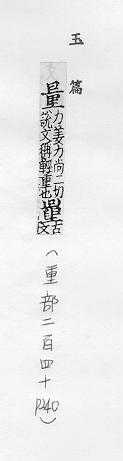 玉篇
量力姜力尚二切
說文稱輕重也𣊫古文
(重部二百四十 P240)